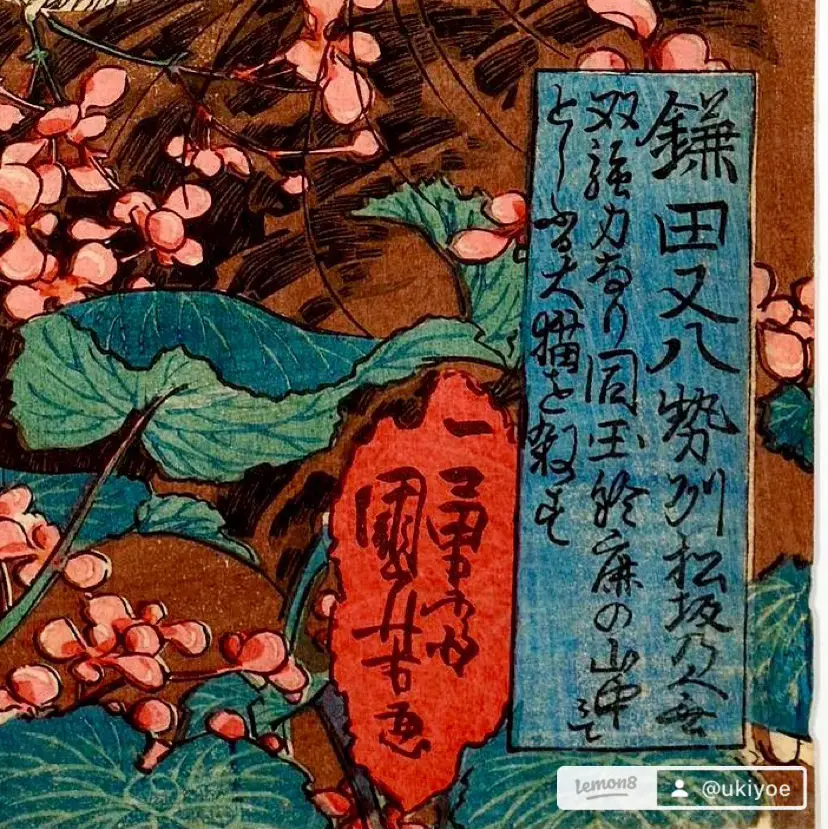 鎌田又八勢州松坂乃人無
双強力なり同国鈴鹿の山中にて
としふる大猫を殺す
一勇斎
國芳画
lemon8 @ukiyoe